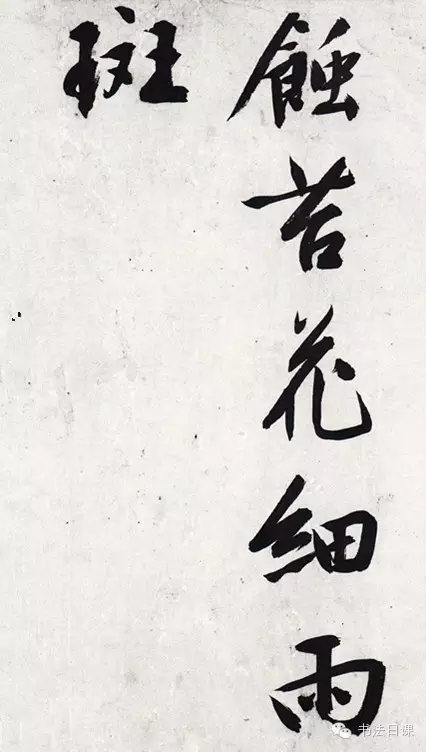 蝕苔花細雨
斑
书法日课